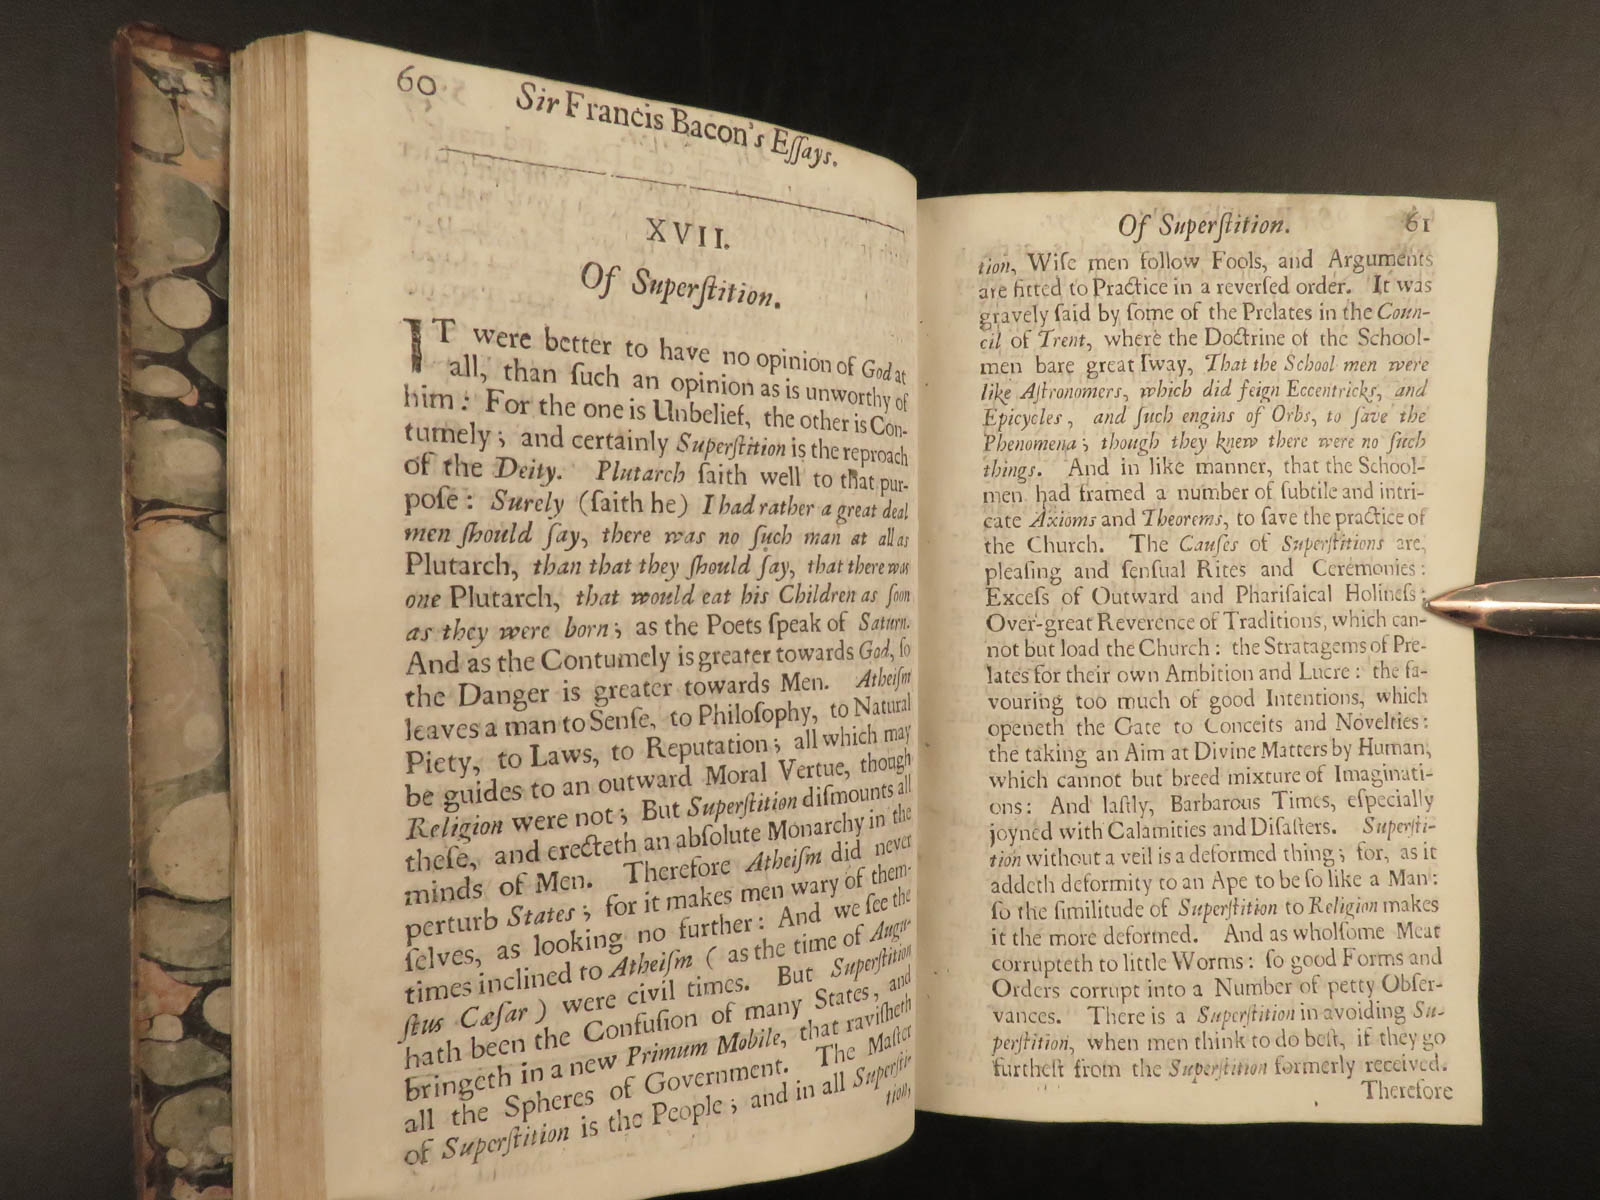 60
Sir Francis Bacon's Eſſays.
XVII.
Of Superſtition.
IT were better to have no opinion of God at
all, than ſuch an opinion as is unworthy of
him: For the one is Unbelief, the other is Con-
tumely; and certainly Superſtition is the reproach
of the Deity. Plutarch ſaith well to that pur-
poſe: Surely (ſaith he) I had rather a great deal
men ſhould ſay, there was no ſuch man at all as
Plutarch, than that they ſhould ſay, that there was
one Plutarch, that would eat his Children as ſoon
as they were born; as the Poets ſpeak of Saturn.
And as the Contumely is greater towards God, ſo
the Danger is greater towards Men. Atheiſm
leaves a man to Senſe, to Philoſophy, to Natural
Piety, to Laws, to Reputation; all which may
be guides to an outward Moral Vertue, though
Religion were not; But Superſtition diſmounts all
theſe, and erecteth an abſolute Monarchy in the
minds of Men. Therefore Atheiſm did never
perturb States; for it makes men wary of them-
ſelves, as looking no further: And we ſee the
times inclined to Atheiſm (as the time of Augu-
ſtus Cæſar) were civil times. But Superſtition
hath been the Confuſion of many States, and
bringeth in a new Primum Mobile, that raviſheth
all the Spheres of Government. The Maſter
of Superſtition is the People; and in all Superſti-
tion,
Of Superſtition.
61
tion, Wiſe men follow Fools, and Arguments
are fitted to Practice in a reverſed order. It was
gravely ſaid by ſome of the Prelates in the Coun-
cil of Trent, where the Doctrine of the School-
men bare great ſway, That the School men were
like Aſtronomers, which did feign Eccentricks, and
Epicycles, and ſuch engins of Orbs, to ſave the
Phenomena; though they knew there were no ſuch
things. And in like manner, that the School-
men had framed a number of ſubtile and intri-
cate Axioms and Theorems, to ſave the practice of
the Church. The Cauſes of Superſtitions are,
pleaſing and ſenſual Rites and Ceremonies:
Exceſs of Outward and Phariſaical Holineſs:
Over-great Reverence of Traditions, which can-
not but load the Church: the Stratagems of Pre-
lates for their own Ambition and Lucre: the fa-
vouring too much of good Intentions, which
openeth the Gate to Conceits and Novelties:
the taking an Aim at Divine Matters by Human,
which cannot but breed mixture of Imaginati-
ons: And laſtly, Barbarous Times, eſpecially
joyned with Calamities and Diſaſters. Superſti-
tion without a veil is a deformed thing; for, as it
addeth deformity to an Ape to be ſo like a Man:
ſo the ſimilitude of Superſtition to Religion makes
it the more deformed. And as wholſome Meat
corrupteth to little Worms: ſo good Forms and
Orders corrupt into a Number of petty Obſer-
vances. There is a Superſtition in avoiding Su-
perſtition, when men think to do beſt, if they go
furtheſt from the Superſtition formerly received.
Therefore